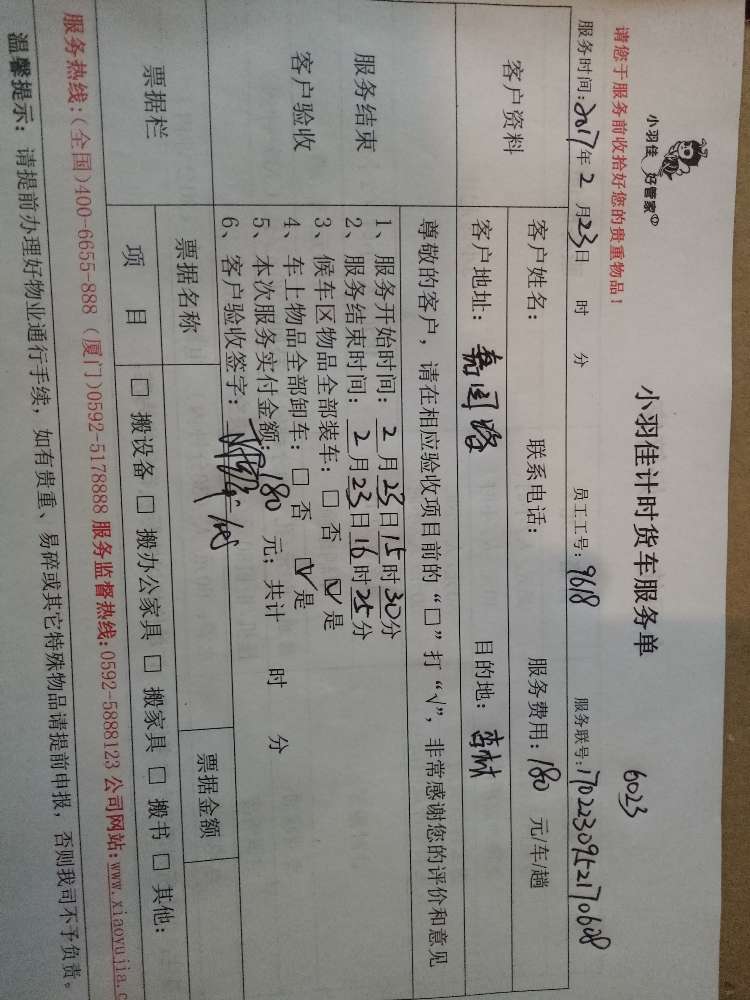 小羽佳 好管家
请您于服务前收拾好您的贵重物品!
小羽佳计时货车服务单
6023
服务时间:2017年2月23日 时 分 员工工号:9618 服务联号:1702230952170608
客户资料
客户姓名: 联系电话: 服务费用:180 元/车/趟
客户地址: 嘉园路 目的地: 杏林
服务结束
客户验收
尊敬的客户,请在相应验收项目前的“□”打“√”,非常感谢您的评价和意见
1、服务开始时间:2月23日15时30分
2、服务结束时间:2月23日16时25分
3、候车区物品全部装车:□ 否 ☑ 是
4、车上物品全部卸车:□ 否 ☑ 是
5、本次服务实付金额:180 元;共计 时 分
6、客户验收签字:
票据栏
票据名称 票据金额
项 目 □ 搬设备 □ 搬办公家具 □ 搬家具 □ 搬书 □ 其他:
服务热线:(全国)400-6655-888 (厦门)0592-5178888 服务监督热线:0592-5888123 公司网站:www.xiaoyujia.c
温馨提示:请提前办理好物业通行手续,如有贵重、易碎或其它特殊物品请提前申报,否则我司不予负责。